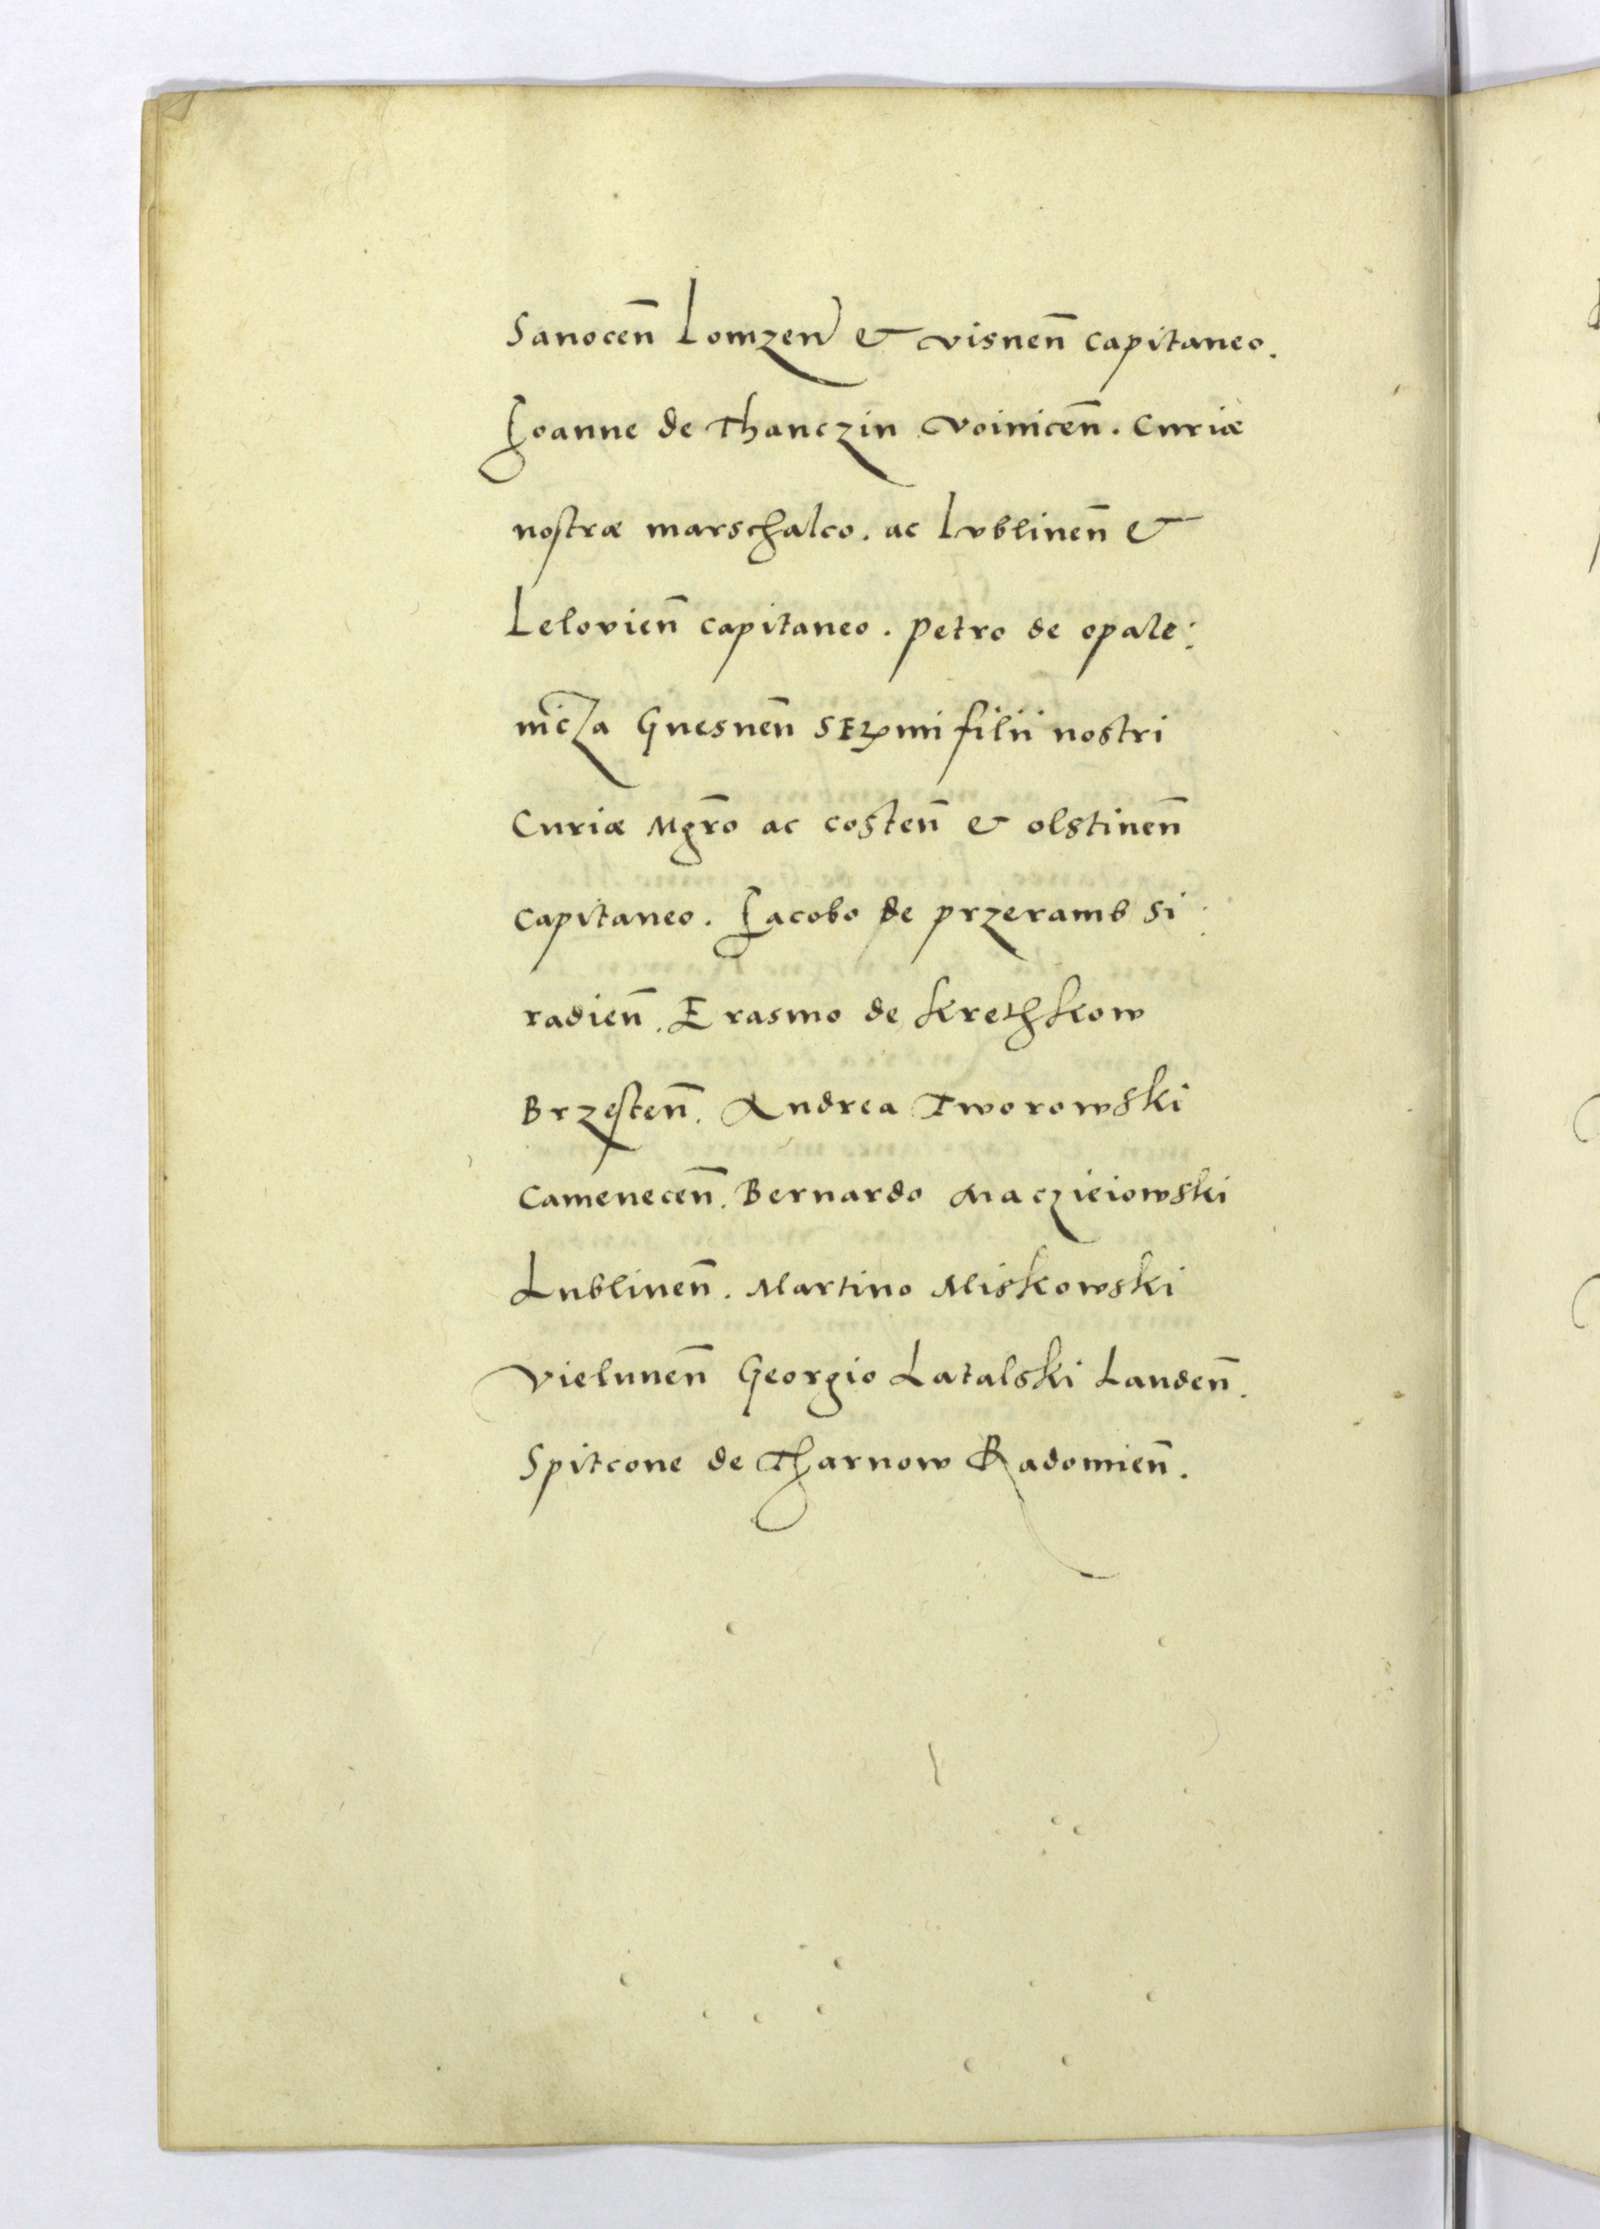 Sanocen̄ Lomzen̄ & visnen̄ capitaneo.
Ioanne de Thanczin voinicen̄. Curiæ
nostræ marschalco. ac Lvblinen̄ &
Lelovien̄ capitaneo. Petro de opale:
nicza Gnesnen̄ filii nostri
Curiæ Mgr̄o ac costen̄ & olstinen̄
capitaneo. Iacobo de przeramb Si
radien̄. Erasmo de Krethkow
Brzesten̄. Andrea Tworowski
Camenecen̄. Bernardo Maczieiowski
Lublinen̄. Martino Miskowski
Vielunen̄ Georgio Latalski Landen̄.
Spitcone de Tharnow Radomien̄.